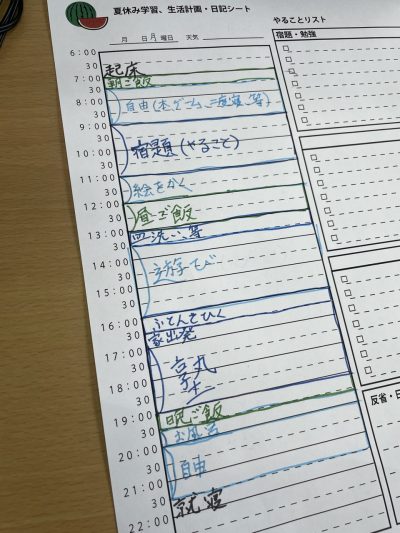 夏休み学習、生活計画・日記シート
月 日 月曜日 天気
6:00
30
起床
7:00
朝ご飯
30
8:00
自由(本、ゲーム、二度寝、等)
30
9:00
30
10:00
宿題(やること)
30
11:00
30
絵をかく
12:00
30
昼ご飯
13:00
皿洗い、等
30
14:00
30
遊び
15:00
30
16:00
ふとんをひく
30
家出発
17:00
30
18:00
30
19:00
晩ご飯
30
お風呂
20:00
30
自由
21:00
30
就寝
22:00
やることリスト
宿題・勉強
反省・日